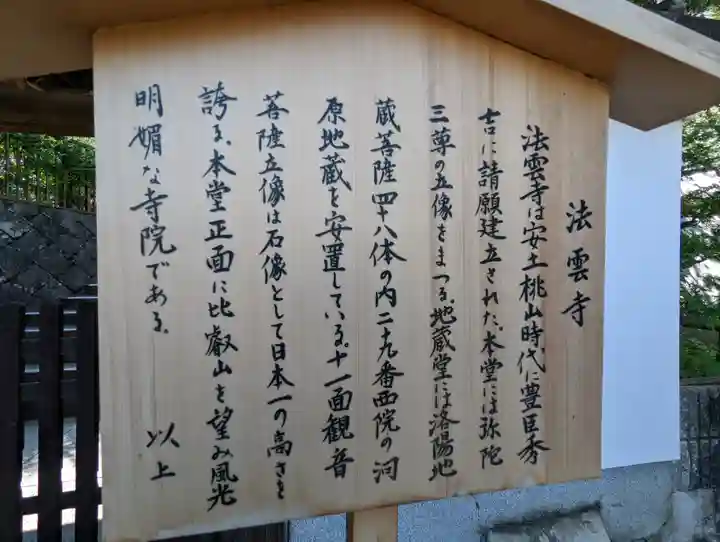 法雲寺
法雲寺は安土桃山時代に豊臣秀
吉に請願建立された。本堂には弥陀
三尊の立像をまつる。地蔵堂には洛陽地
蔵菩薩四十八体の内二十九番西院の河
原地蔵を安置している。十一面観音
菩薩立像は石像として日本一の高さを
誇る。本堂正面に比叡山を望み風光
明媚な寺院である。
以上